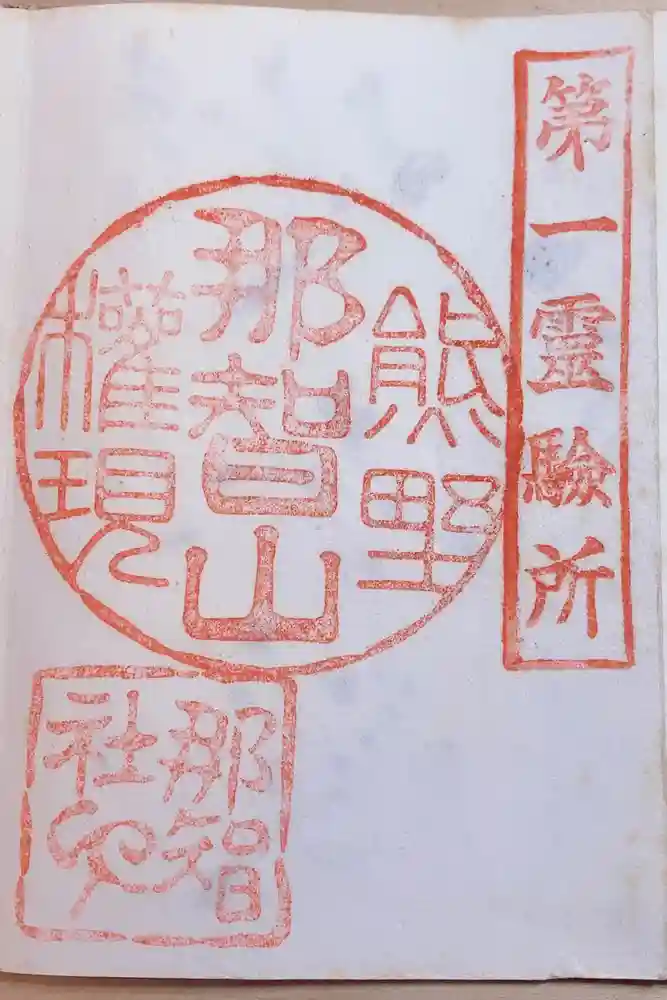 第一霊驗所
熊野
那智山
權現
那智
社